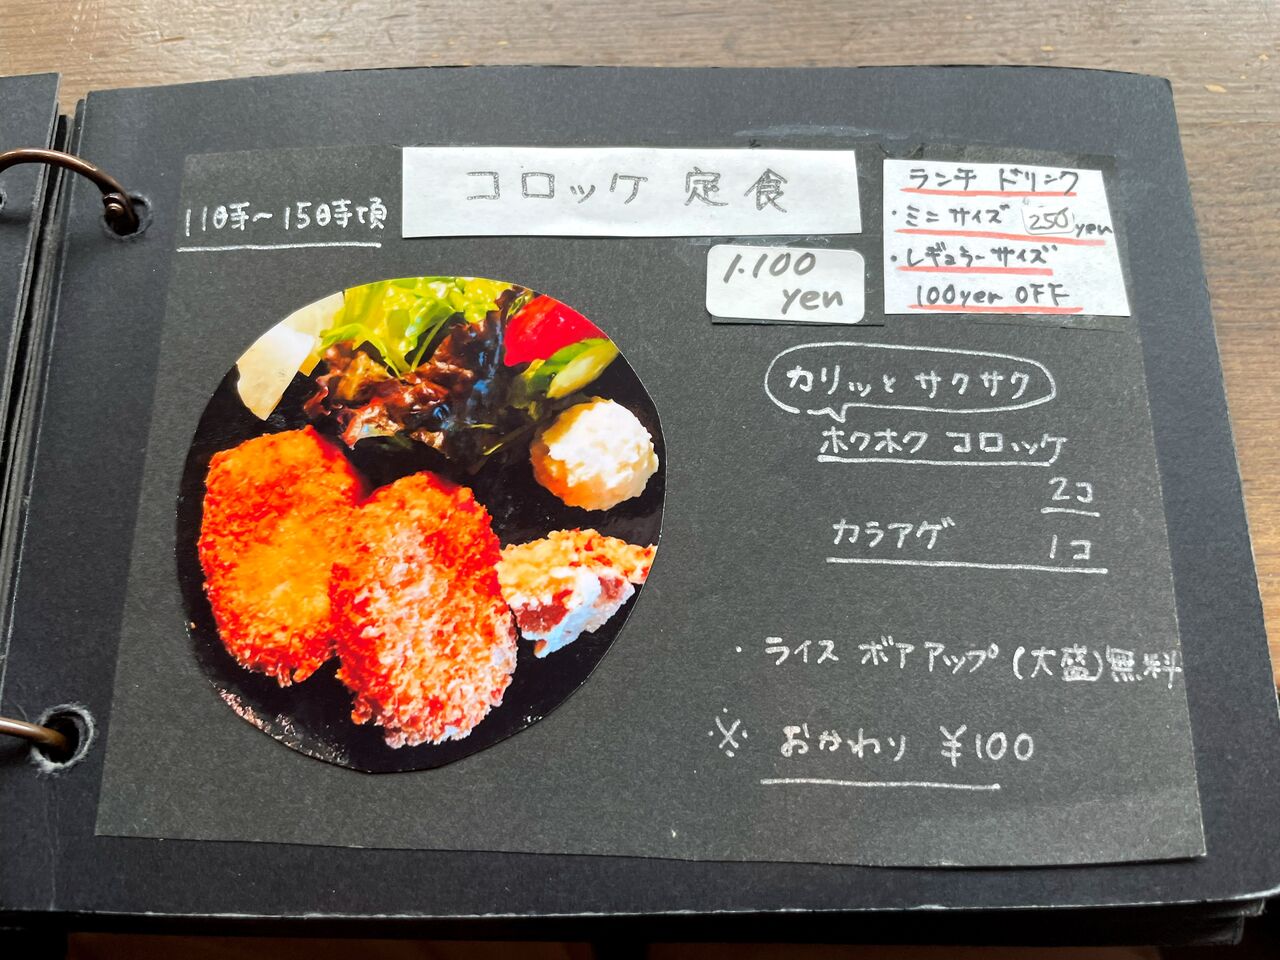 11時〜15時頃
コロッケ 定食
1.100
yen
ランチ ドリンク
・ミニサイズ 250yen
・レギュラーサイズ
100yen OFF
カリッと サクサク
ホクホク コロッケ
2コ
カラアゲ 1コ
・ライス ボアアップ(大盛)無料
※ おかわり ¥100